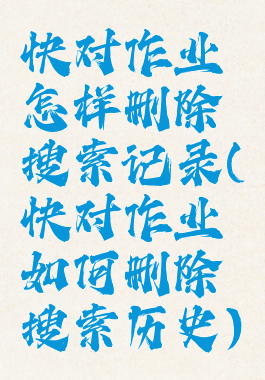 快对作业
怎样删除
搜索记录(
快对作业
如何删除
搜索历史)